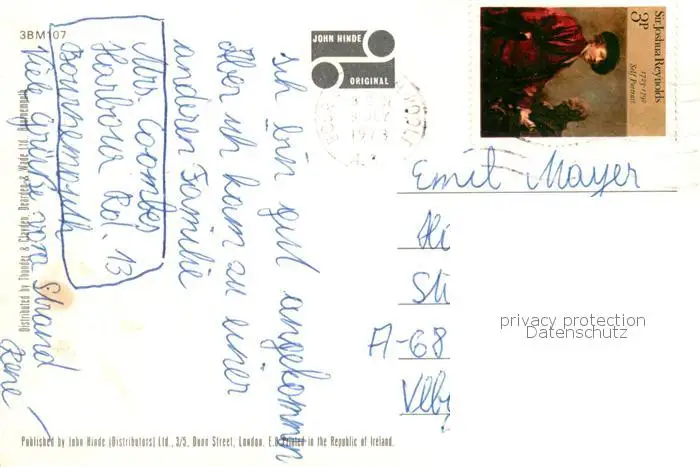 3BM107
JOHN HINDE
ORIGINAL
Sir Joshua Reynolds
1723-1792
Self Portrait
3P
1973
Ich bin gut angekommen
Aber ich kam zu einer
anderen Familie
Mrs. Coombes
Harbour Rd. 13
Bournemouth
Viele Grüße vom Strand
René
Emil Mayer
A-68
privacy protection
Datenschutz
Distributed by Thunder & Clayden, Dearden & Wade Ltd., Bournemouth
Published by John Hinde (Distributors) Ltd., 3/5, Dunn Street, London. E.8 Printed in the Republic of Ireland.